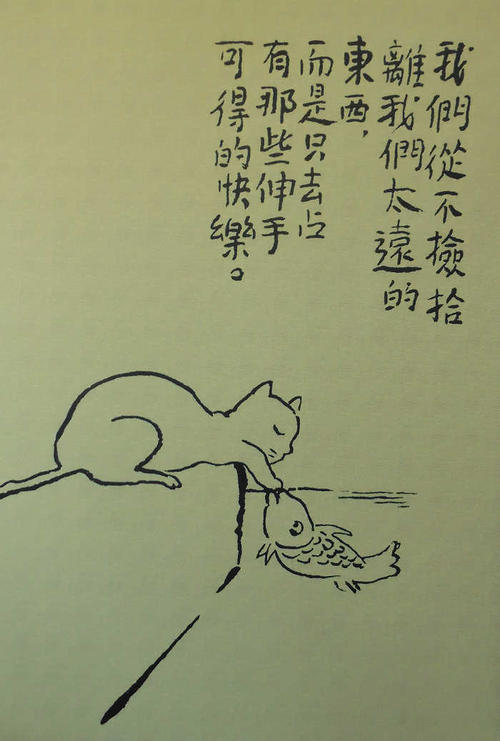 我們從不撿拾
離我們太遠的
東西，
而是只去占
有那些伸手
可得的快樂。